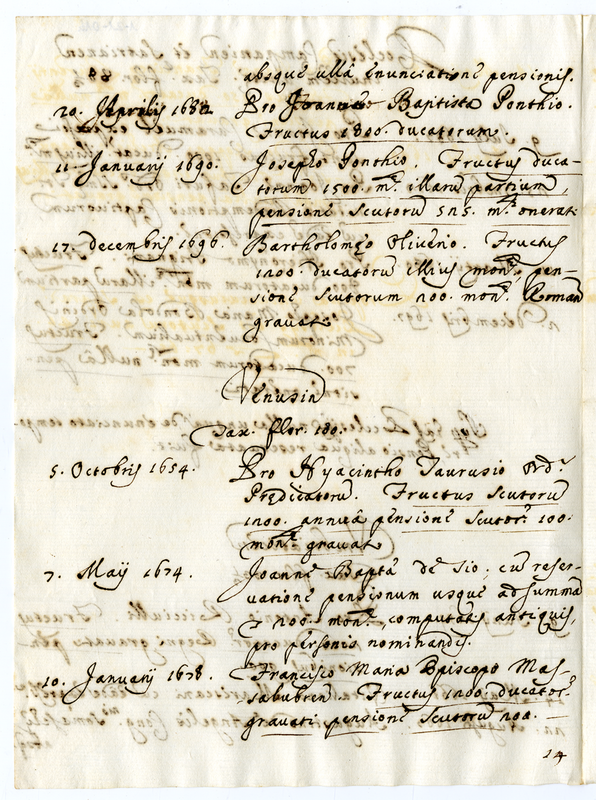 absque ullâ enunciatione pensionis.
20. Aprilis 1682 Pro Joanne Baptista Ponthio.
Fructus 1800. ducatorum.
11. Januarij 1690. Josepho Ponthio. Fructus duca-
torum 1500. mtę illarũ partium,
pensione scutorũ 525. mtę onerati
17. decembris 1696. Bartholomęo Oliverio. Fructus
1200. ducatorũ illius montę pen-
sione scutorum 200. montę Roman
gravati
Venusin
Tax. flor. 180.
5. Octobris 1654. Pro Hyacintho Taurusio Ord.
Prędicatorũ. Fructus scutorũ
1200. annuâ pensione scutor. 100.
montę gravati
7. Maij 1674. Joanne Baptâ de Sio, cũ reser-
vatione pensionum usque ad summã
200. montę computatis antiquis,
pro personis nominandis.
10. Januarij 1678. Francisco Maria Episcopo Mas-
salubren. Fructus 1200. ducator.
gravati pensione scutorũ
14